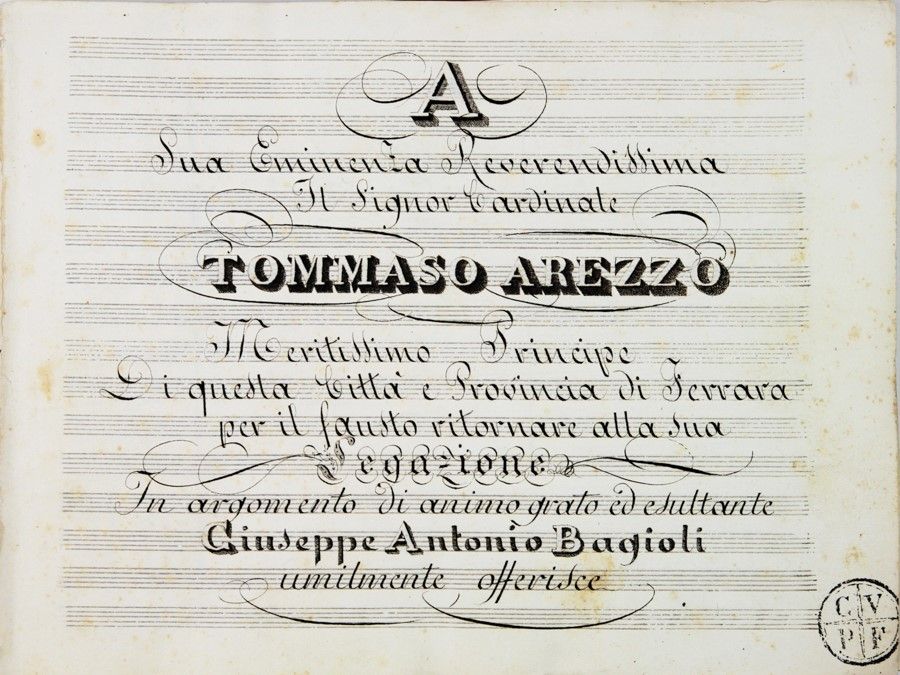 A
Sua Eminenza Reverendissima
Il Signor Cardinale
TOMMASO AREZZO
Meritissimo Principe
Di questa Città e Provincia di Ferrara
per il fausto ritornare alla sua
Legazione
In argomento di animo grato ed esultante
Giuseppe Antonio Bagioli
umilmente offerisce
C V
P F